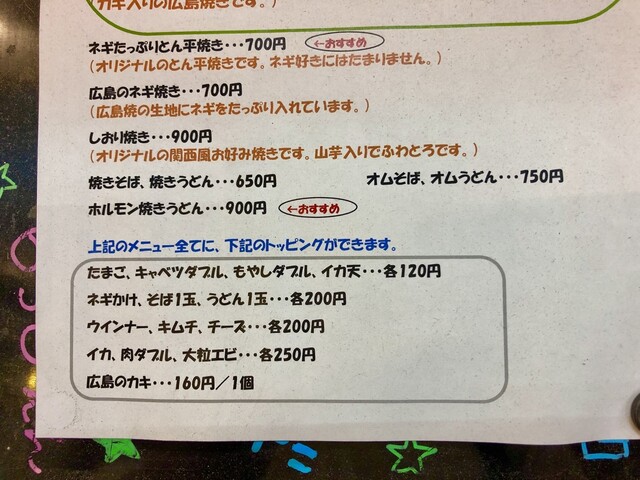 カキ入りの広島焼きです。)
ネギたっぷりとん平焼き・・・700円 ←おすすめ
(オリジナルのとん平焼きです。ネギ好きにはたまりません。)
広島のネギ焼き・・・700円
(広島焼の生地にネギをたっぷり入れています。)
しおり焼き・・・900円
(オリジナルの関西風お好み焼きです。山芋入りでふわとろです。)
焼きそば、焼きうどん・・・650円 オムそば、オムうどん・・・750円
ホルモン焼きうどん・・・900円 ←おすすめ
上記のメニュー全てに、下記のトッピングができます。
たまご、キャベツダブル、もやしダブル、イカ天・・・各120円
ネギかけ、そば1玉、うどん1玉・・・各200円
ウインナー、キムチ、チーズ・・・各200円
イカ、肉ダブル、大粒エビ・・・各250円
広島のカキ・・・160円/1個